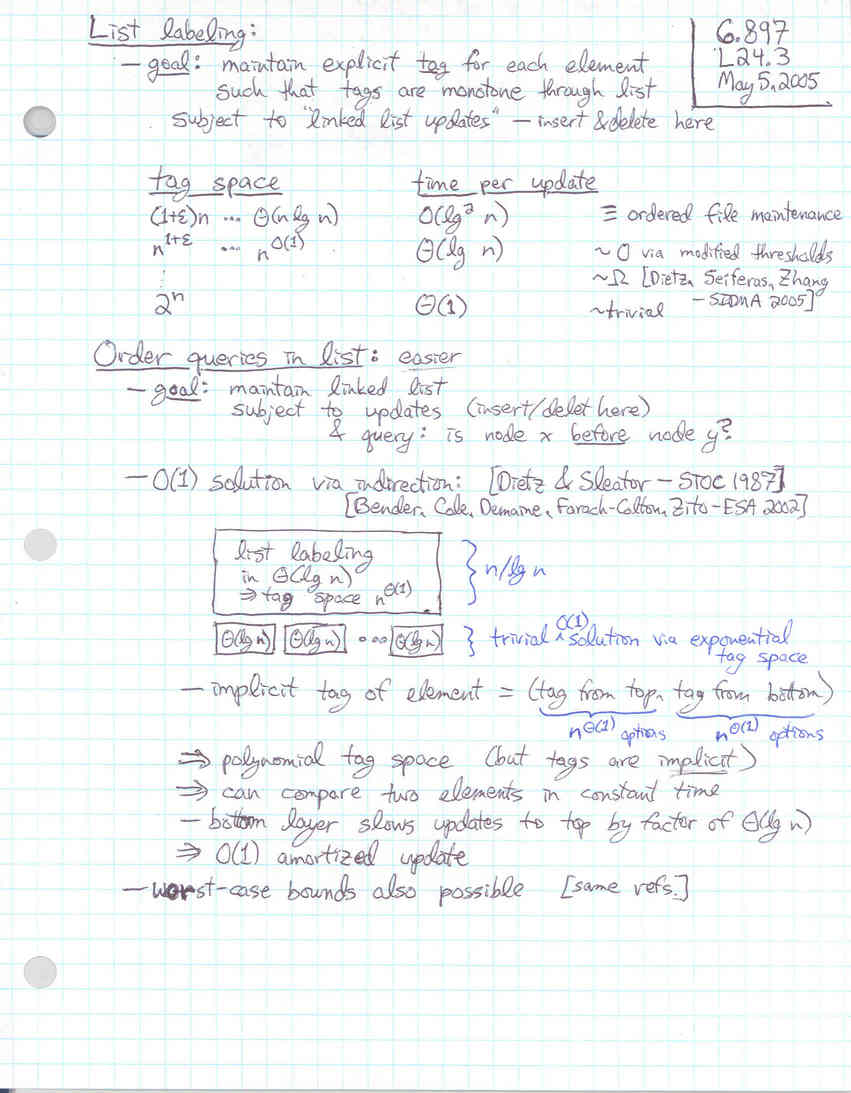 List labeling:
6.897
L24.3
May 5, 2005
— goal: maintain explicit tag for each element
such that tags are monotone through list
subject to "linked list updates" — insert & delete here
tag space    time per update
(1+ε)n ... Θ(n lg n)    O(lg² n)    ≡ ordered file maintenance
n^{1+ε} ... n^{O(1)}    Θ(lg n)    ~ O via modified thresholds
⋮    ~ Ω [Dietz, Seiferas, Zhang
— SIDMA 2005]
2^n    Θ(1)    ~ trivial
Order queries in list: easier
— goal: maintain linked list
subject to updates (insert/delet here)
& query: is node x before node y?
— O(1) solution via indirection: [Dietz & Sleator — STOC 1987]
[Bender, Cole, Demaine, Farach-Colton, Zito – ESA 2002]
list labeling
in Θ(lg n)
⇒ tag space n^{Θ(1)}
} n/lg n
Θ(lg n) Θ(lg n) ... Θ(lg n) } trivial ^O(1) solution via exponential
tag space
— implicit tag of element = (tag from top, tag from bottom)
n^{Θ(1)} options    n^{Θ(1)} options
⇒ polynomial tag space (but tags are implicit)
⇒ can compare two elements in constant time
— bottom layer slows updates to top by factor of Θ(lg n)
⇒ O(1) amortized update
— worst-case bounds also possible [same refs.]